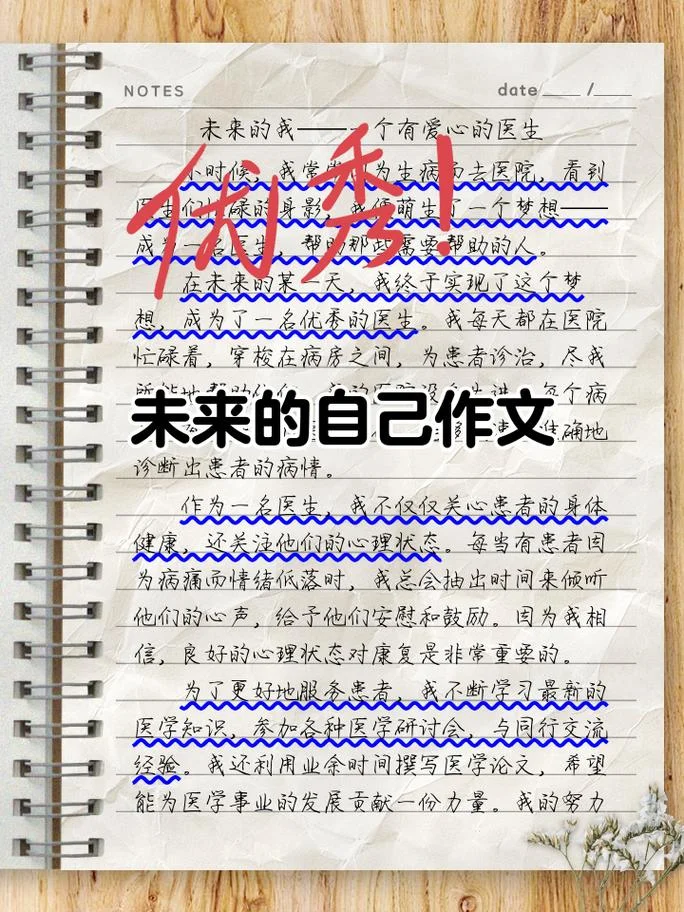 NOTES date ____ /____
未来的我——一个有爱心的医生
优秀!
小时候，我常常因为生病而去医院，看到
医生们忙碌的身影，我便萌生了一个梦想——
成为一名医生，帮助那些需要帮助的人。
在未来的某一天，我终于实现了这个梦
想，成为了一名优秀的医生。我每天都在医院
忙碌着，穿梭在病房之间，为患者诊治，尽我
所能地帮助他们。 每个病
未来的自己作文
准确地
诊断出患者的病情。
作为一名医生，我不仅仅关心患者的身体
健康，还关注他们的心理状态。每当有患者因
为病痛而情绪低落时，我总会抽出时间来倾听
他们的心声，给予他们安慰和鼓励。因为我相
信，良好的心理状态对康复是非常重要的。
为了更好地服务患者，我不断学习最新的
医学知识，参加各种医学研讨会，与同行交流
经验。我还利用业余时间撰写医学论文，希望
能为医学事业的发展贡献一份力量。我的努力